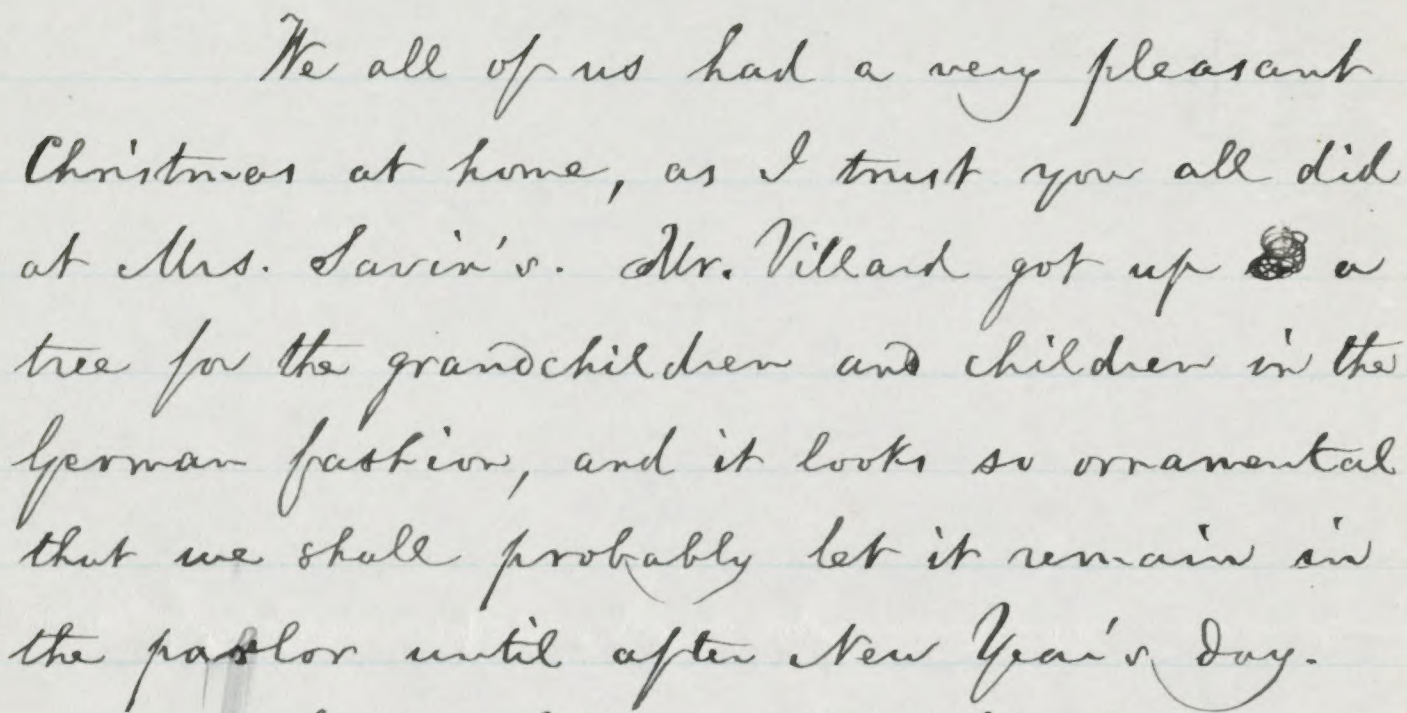 We all of us had a very pleasant
Christmas at home, as I trust you all did
at Mrs. Savin's. Mr. Villard got up a
tree for the grandchildren and children in the
German fashion, and it looks so ornamental
that we shall probably let it remain in
the parlor until after New Year's day.